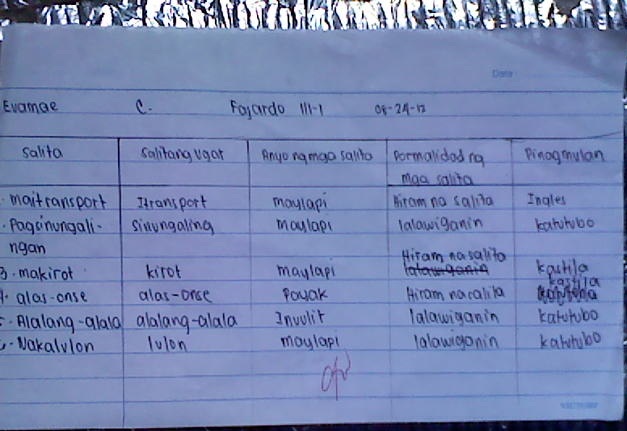 Date
Evamae C. Fajardo III-1 08-24-12
Salita Salitang ugat Anyo ng mga salita Pormalidad ng Pinagmulan
mga salita
maitransport Itransport maylapi Hiram na salita Ingles
Pagsinungali- sinungaling maylapi lalawiganin katutubo
ngan
Hiram na salita
3. makirot kirot maylapi lalawiganin kastila
kastila
4. alas-onse alas-onse Payak Hiram na salita
5. Alalang-alala alalang-alala Inuulit lalawiganin katutubo
Nakalulon lulon maylapi lalawiganin katutubo